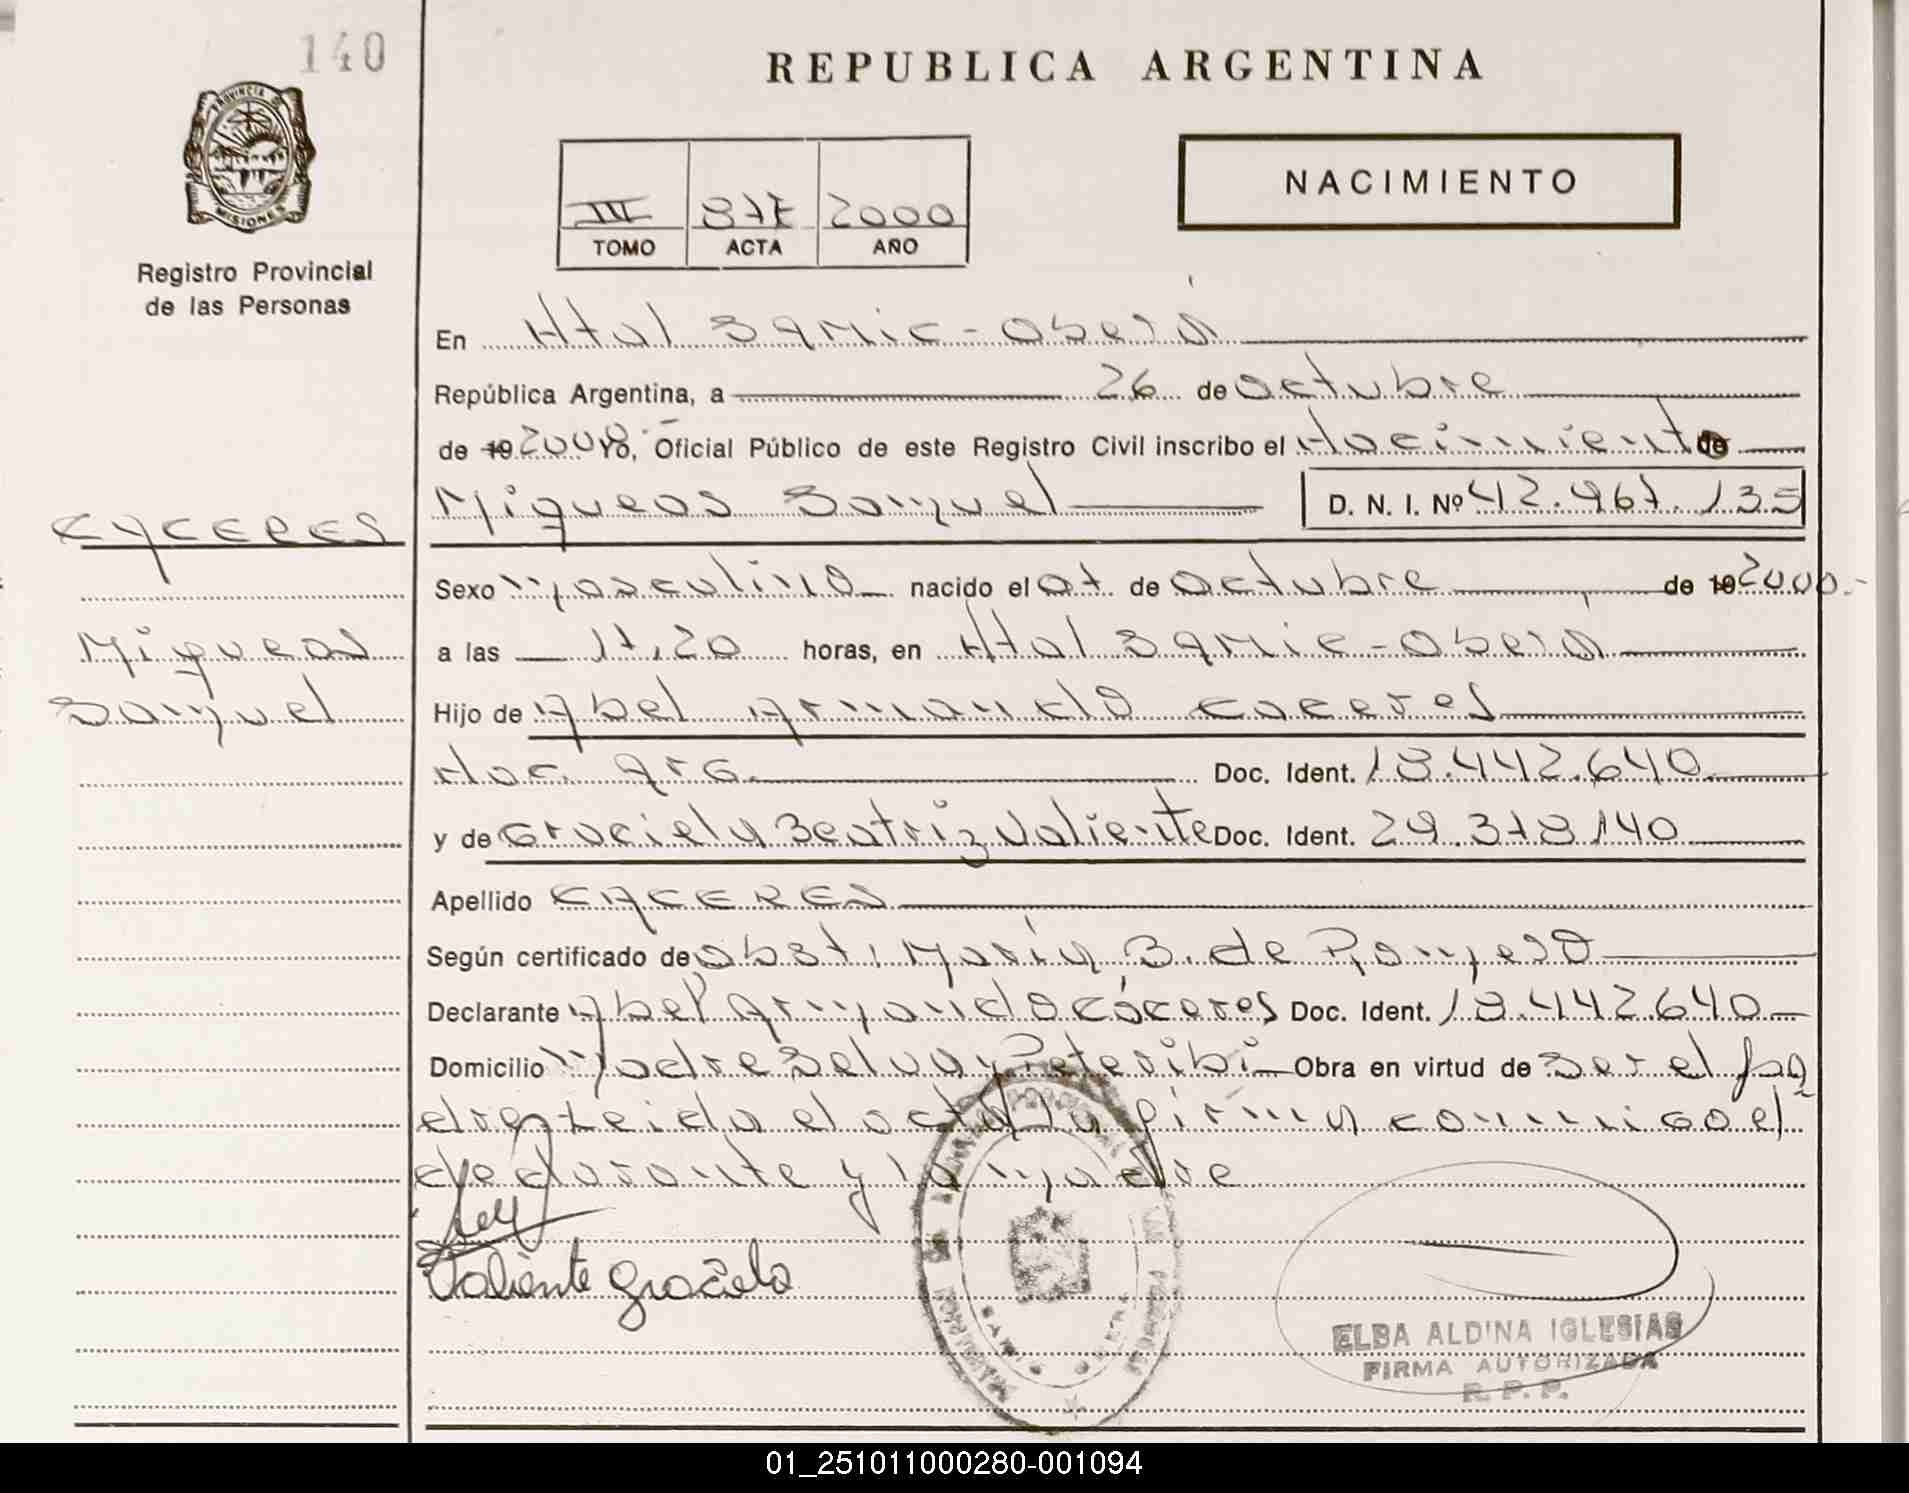 140
REPUBLICA ARGENTINA
PROVINCIA DE
MISIONES
NACIMIENTO
III 2000
TOMO ACTA AÑO
Registro Provincial
de las Personas
En Htal SAMIC - Oberá
República Argentina, a 26 de Octubre
de 19 2000 Yo, Oficial Público de este Registro Civil inscribo el Nacimiento de
CACERES
Miqueas Samuel D. N. I. Nº 42.967.135
Sexo masculino nacido el 07 de Octubre de 19 2000.-
Miqueas
a las 17,20 horas, en Htal SAMIC - Oberá
Samuel
Hijo de Abel Armando Caceres
Nac. Arg. Doc. Ident. 18.442.640
y de Graciela Beatriz Valiente Doc. Ident. 29.378.140
Apellido CACERES
Según certificado de Obst. María B. de Romero
Declarante Abel Armando Cáceres Doc. Ident. 18.442.640
Domicilio Madreselva y Peteribi Obra en virtud de ser el pa
dre Leida el acta la firma conmigo el
declarante y la madre
Valiente Graciela
ELBA ALDINA IGLESIAS
FIRMA AUTORIZADA
R. P. P.
01_251011000280-001094